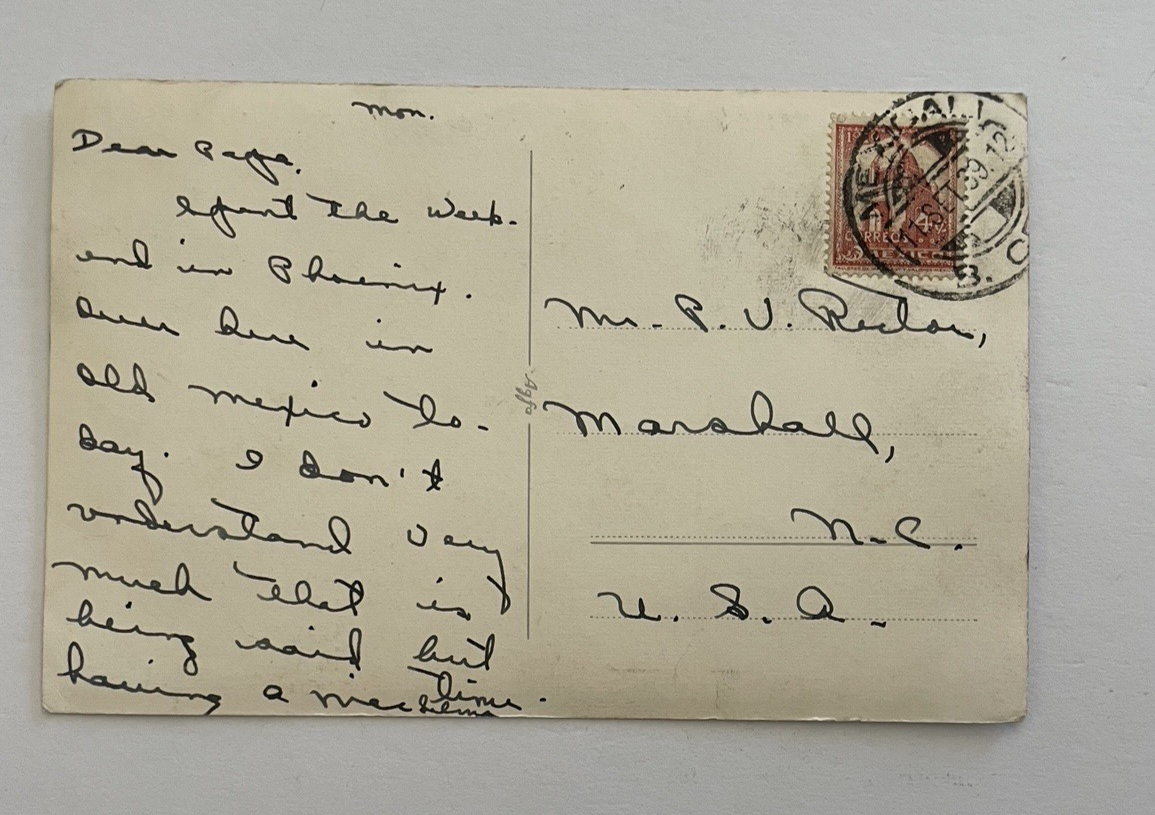 Mon.
Dear Papa,
Spent the week-
end in Phoenix.
Over here in
Old Mexico to-
day. I don't
understand very
much that is
being said but
having a nice time.
Selma
Agfa
MEXICALI
11 SET. 39. 12
B. C
4¢
CORREOS
MEXICO
Mr. P. V. Rector,
Marshall,
N.C.
U. S. A.